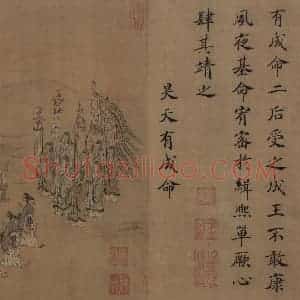 有成命二后受之成王不敢康
夙夜基命宥密於緝熙單厥心
肆其靖之
昊天有成命